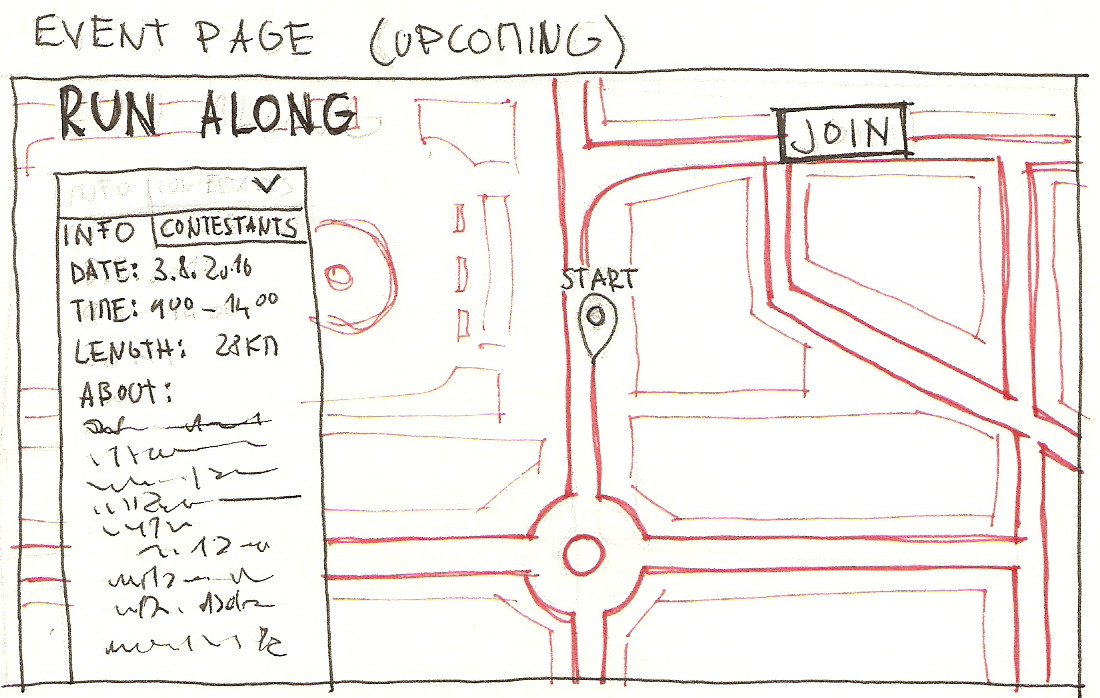 EVENT PAGE (UPCOMING)
RUN ALONG
JOIN
INFO CONTESTANTS
DATE: 3.8.2016
TIME: 900 - 1400
LENGTH: 28KM
ABOUT:
START